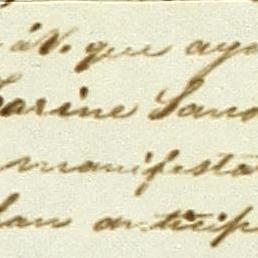 á V. que aye
Karine Sano
manifesta
lan anticip